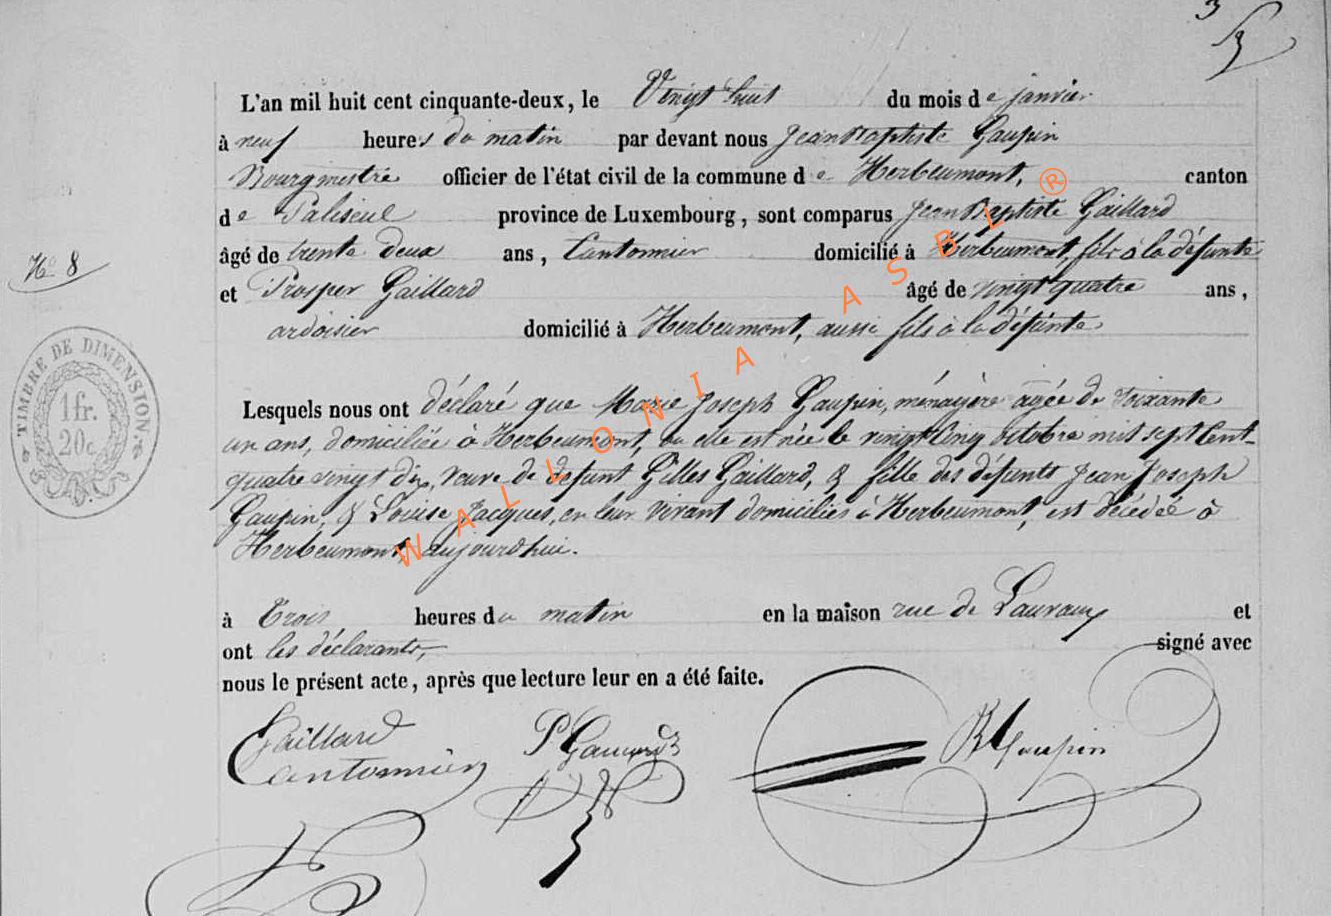 3
L'an mil huit cent cinquante-deux, le Vingt huit du mois de janvier
à neuf heures du matin par devant nous Jean Baptiste Gaupin
Bourgmestre officier de l'état civil de la commune de Herbeumont, canton
de Paliseul province de Luxembourg, sont comparus Jean Baptiste Gaillard
âgé de trente deux ans, Cantonnier domicilié à Herbeumont, fils à la défunte
et Prosper Gaillard âgé de vingt quatre ans,
ardoisier domicilié à Herbeumont, aussi fils à la défunte
N° 8
TIMBRE DE DIMENSION.
1 fr.
20c.
Lesquels nous ont déclaré que Marie Joseph Gaupin, ménagère agée de soixante
un ans, domiciliée à Herbeumont, ou elle est née le vingt Cinq octobre mil sept Cent
quatre vingt dix, veuve de defunt Gilles Gaillard, & fille des défunts Jean Joseph
Gaupin, & Louise Jacques, en leur vivant domiciliés à Herbeumont, est décédée à
Herbeumont, aujourd'hui.
à Trois heures du matin en la maison rue de Lauvaux et
ont les déclarants, signé avec
nous le présent acte, après que lecture leur en a été faite.
Gaillard
Cantonnier
JB Gaupin
WALLONIA ASBL ®